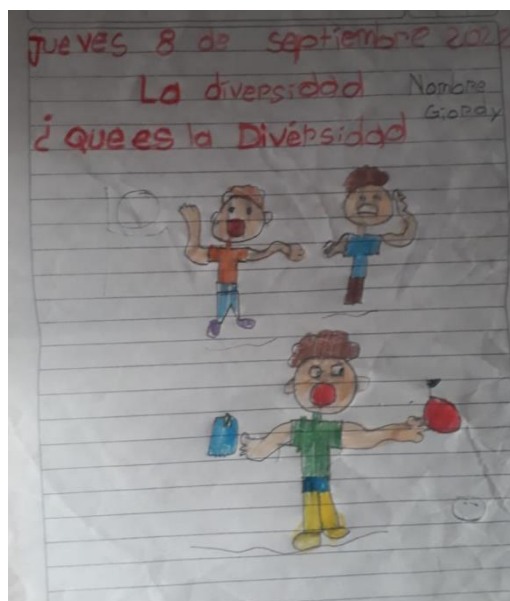 Jueves 8 de septiembre 2022
La diversidad
Nombre
Gioray
¿Que es la Diversidad